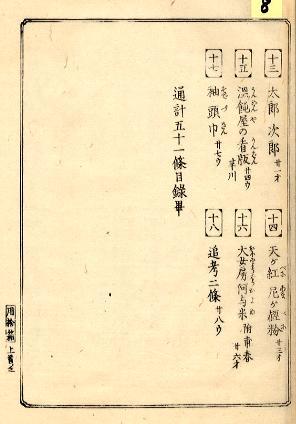 十三 太郎次郎 廿一オ
十四 天が紅 尼が經粉 廿三オ
十五 温飩屋の看版 廿四ウ
十六 大女房阿与米 附 廿六オ
十七 袖頭巾 廿七ウ
十八 追考二條 廿八ウ
通計五十一條目録畢
8